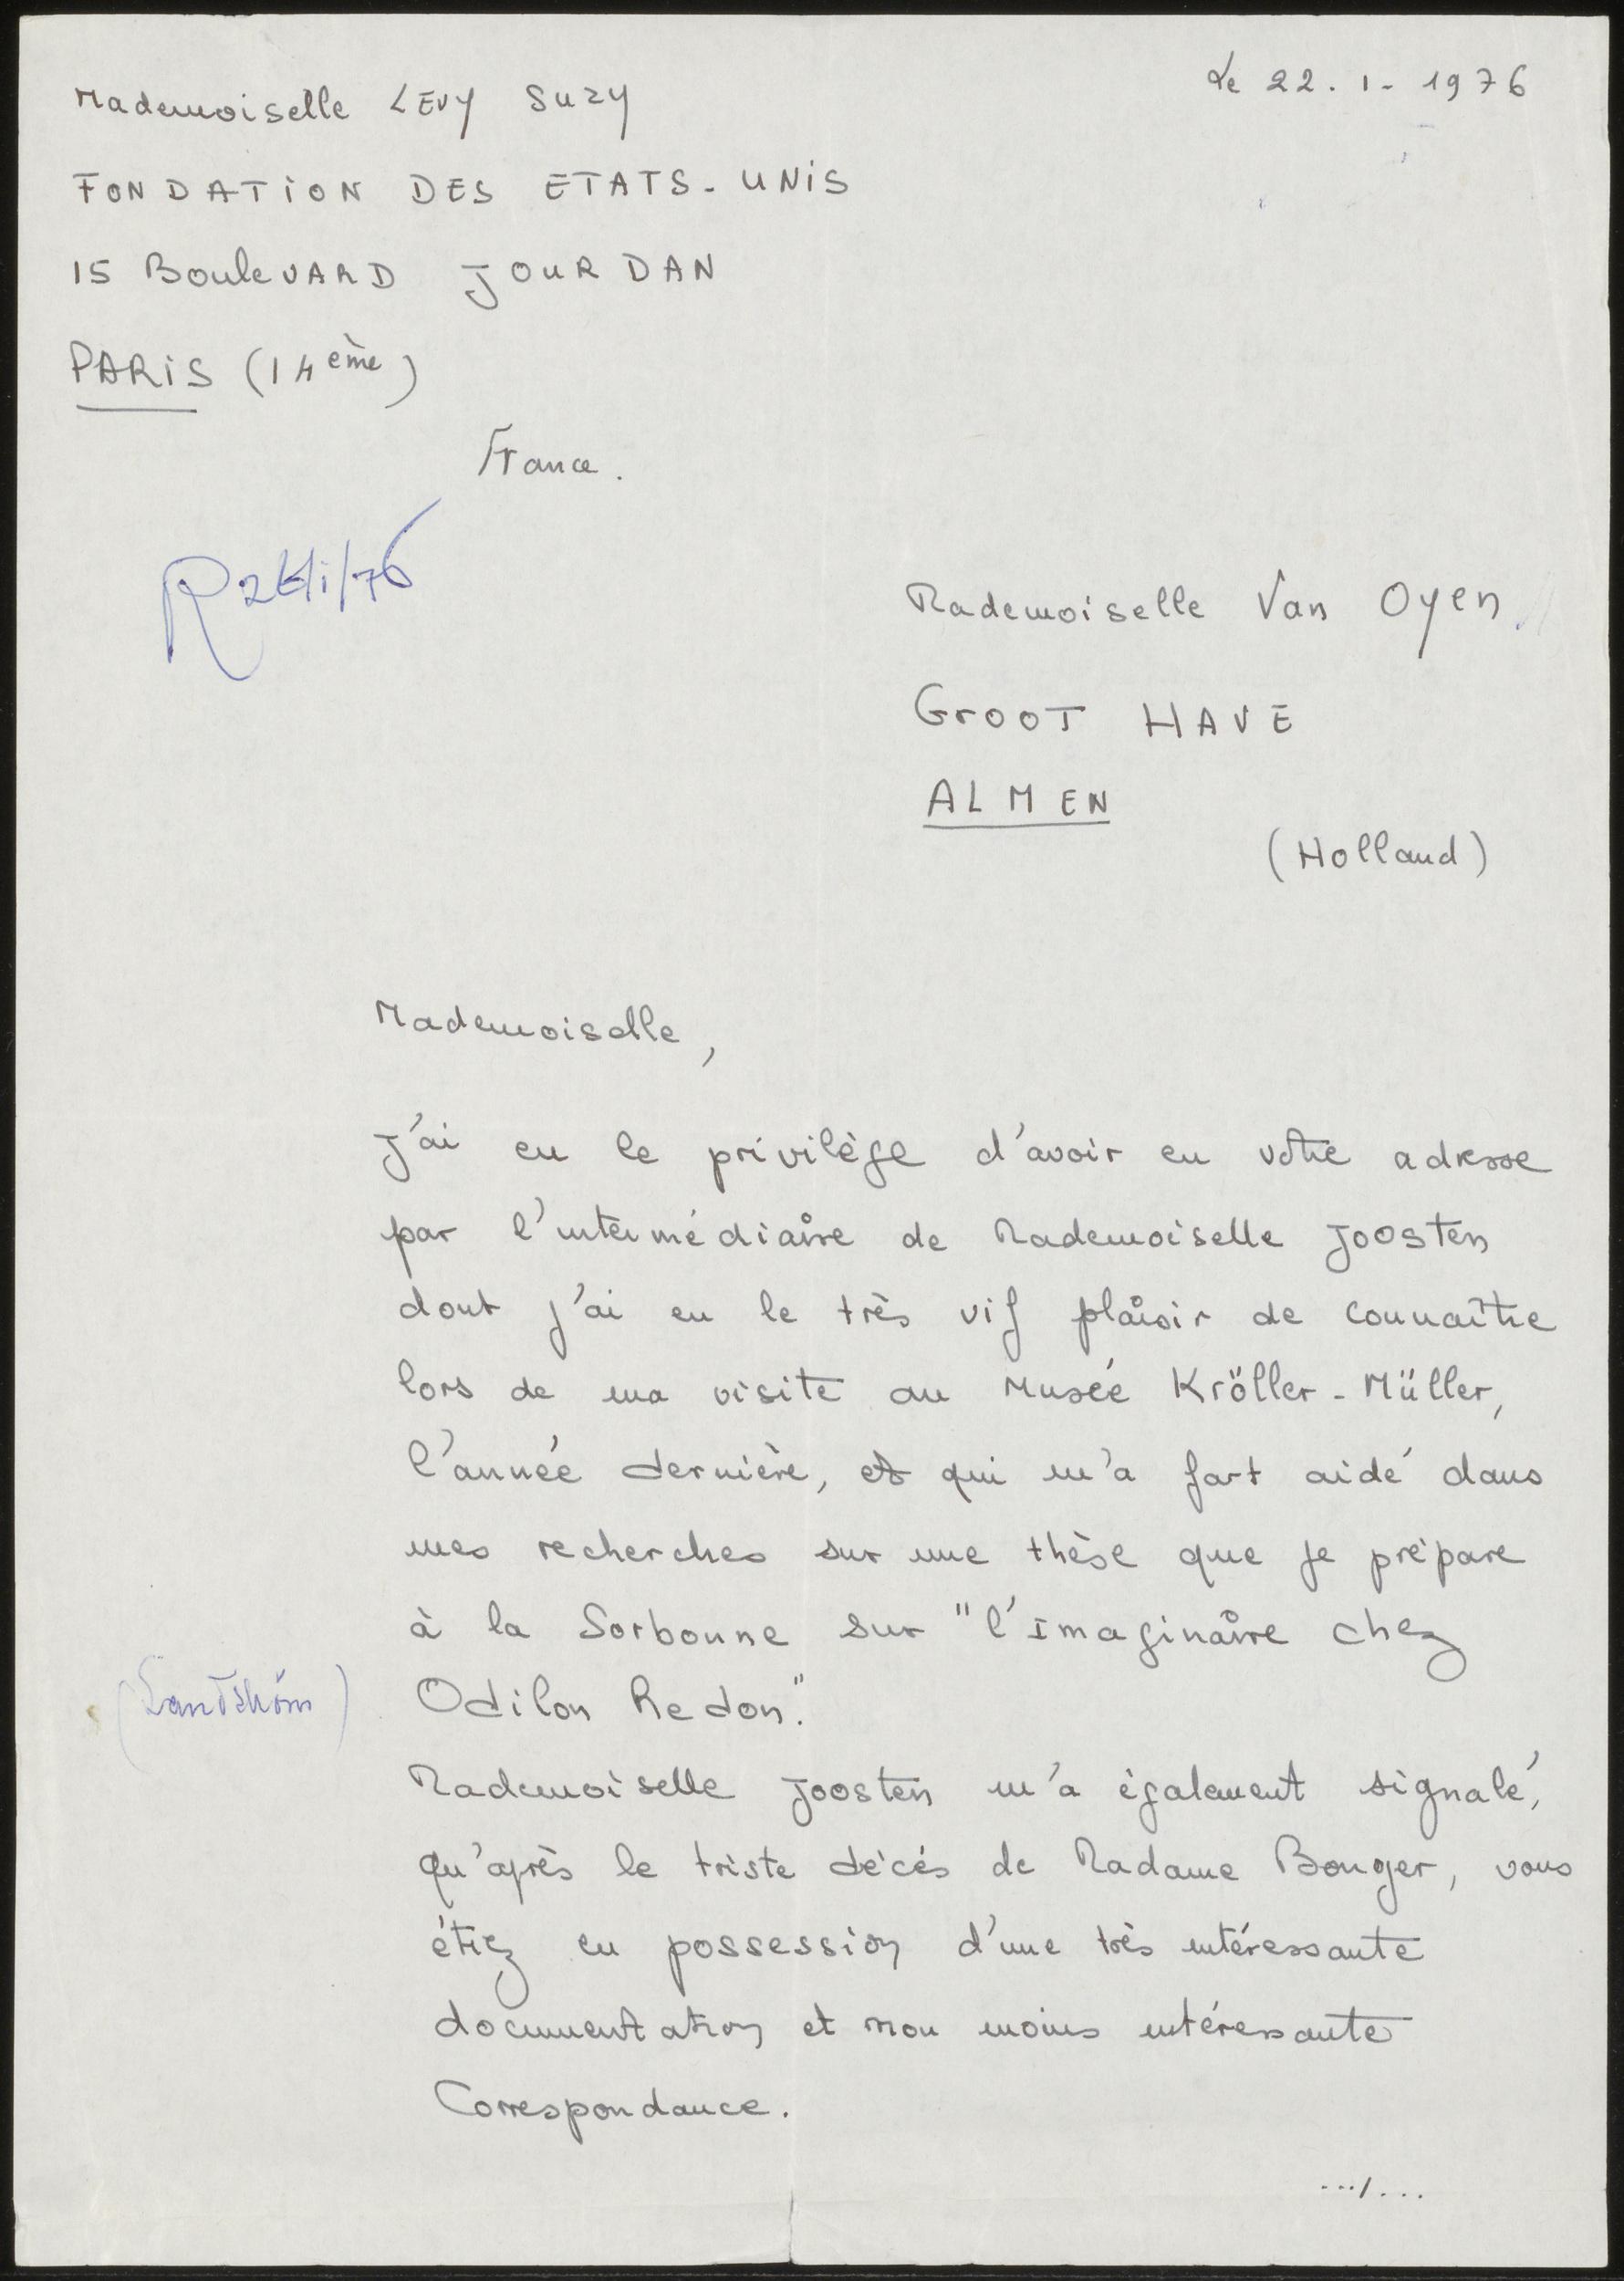 Le 22.1-1976
Mademoiselle LEVY SUZY
FONDATION DES ETATS-UNIS
15 BouleVARD JOURDAN
PARIS (14ème)
France.
Mademoiselle Van Oyen
GROOT HAVE
ALMEN
(Holland)
Mademoiselle,
J'ai eu le privilège d'avoir eu votre adresse
par l'intermédiaire de Mademoiselle Joosten
dont j'ai eu le très vif plaisir de connaître
lors de ma visite au Musée Kröller-Müller,
l'année dernière, et qui m'a fort aidé dans
mes recherches sur une thèse que je prépare
à la Sorbonne sur "l'Imaginaire chez
Odilon Redon".
Mademoiselle Joosten m'a également signalé,
qu'après le triste décès de Madame Bonger, vous
étiez en possession d'une très intéressante
documentation et non moins intéressante
Correspondance.
.../...